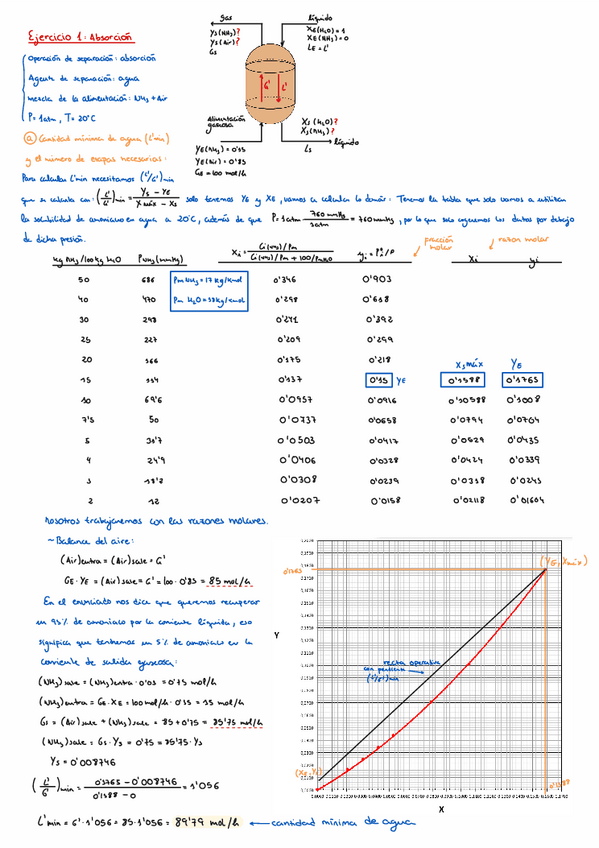 Ejercicio 1: Absorción
Operación de separación: absorción
Agente de separación: agua
Mezcla de la alimentación: NH3 + Air
P = 1atm, T = 20°C
gas
Ys (NH3)?
Ys (Air)?
Gs
líquido
XE (H2O) = 1
XE (NH3) = 0
LE = L'
G' L'
Alimentación gaseosa
YE (NH3) = 0'15
YE (Air) = 0'85
GE = 100 mol/h
Xs (H2O)?
Xs (NH3)?
líquido
Ls
a) Cantidad mínima de agua (L'min)
y el número de etapas necesarias:
Para calcular L'min necesitamos (L'/G')min
que se calcula con: (L'/G')min = (Ys - YE)/(Xmáx - Xs) solo tenemos YE y XE, vamos a calcular lo demás: Tenemos la tabla que solo vamos a utilizar
la solubilidad de amoniaco en agua a 20°C, además de que P = 1atm · 760 mmHg/1atm = 760 mmHg, por lo que solo cogeremos los datos por debajo
de dicha presión.
fracción molar
razon molar
kg NH3/100kg H2O PNH3 (mmHg) Xi = Ci(NH3)/Pm / (Ci(NH3)/Pm + 100/PmH2O) yi = Pi/P Xi yi
50 686 0'346 0'903
PmNH3 = 17 kg/kmol
Pm H2O = 18 kg/kmol
40 470 0'298 0'618
30 298 0'241 0'392
25 227 0'209 0'299
20 166 0'175 0'218
Xs máx YE
15 114 0'137 0'15 YE 0'1588 0'1765
10 69'6 0'0957 0'0916 0'10588 0'1008
7'5 50 0'0737 0'0658 0'0794 0'0704
5 31'7 0'0503 0'0417 0'0529 0'0435
4 24'9 0'0406 0'0328 0'0424 0'0339
3 18'2 0'0308 0'0239 0'0318 0'0245
2 12 0'0207 0'0158 0'02118 0'01604
Nosotros trabajaremos con las razones molares.
~ Balance del aire:
(Air)entra = (Air)sale = G'
GE · YE = (Air)sale = G' = 100 · 0'85 = 85 mol/h
En el enunciado nos dice que queremos recuperar
un 95% de amoniaco por la corriente líquida, eso
significa que tendremos un 5% de amoniaco en la
corriente de salida gaseosa:
(NH3)sale = (NH3)entra · 0'05 = 0'75 mol/h
(NH3)entra = GE · XE = 100 mol/h · 0'15 = 15 mol/h
Gs = (Air)sale + (NH3)sale = 85 + 0'75 = 85'75 mol/h
(NH3)sale = Gs · Ys = 0'75 = 85'75 · Ys
Ys = 0'008746
(L'/G')min = (0'1765 - 0'008746)/(0'1588 - 0) = 1'056
L'min = G' · 1'056 = 85 · 1'056 = 89'79 mol/h ← cantidad mínima de agua
0'1765
(YE, Xmáx)
Y
recta operativa
con pendiente
(L'/G')min
(Xs, Ys)
0'1588
X